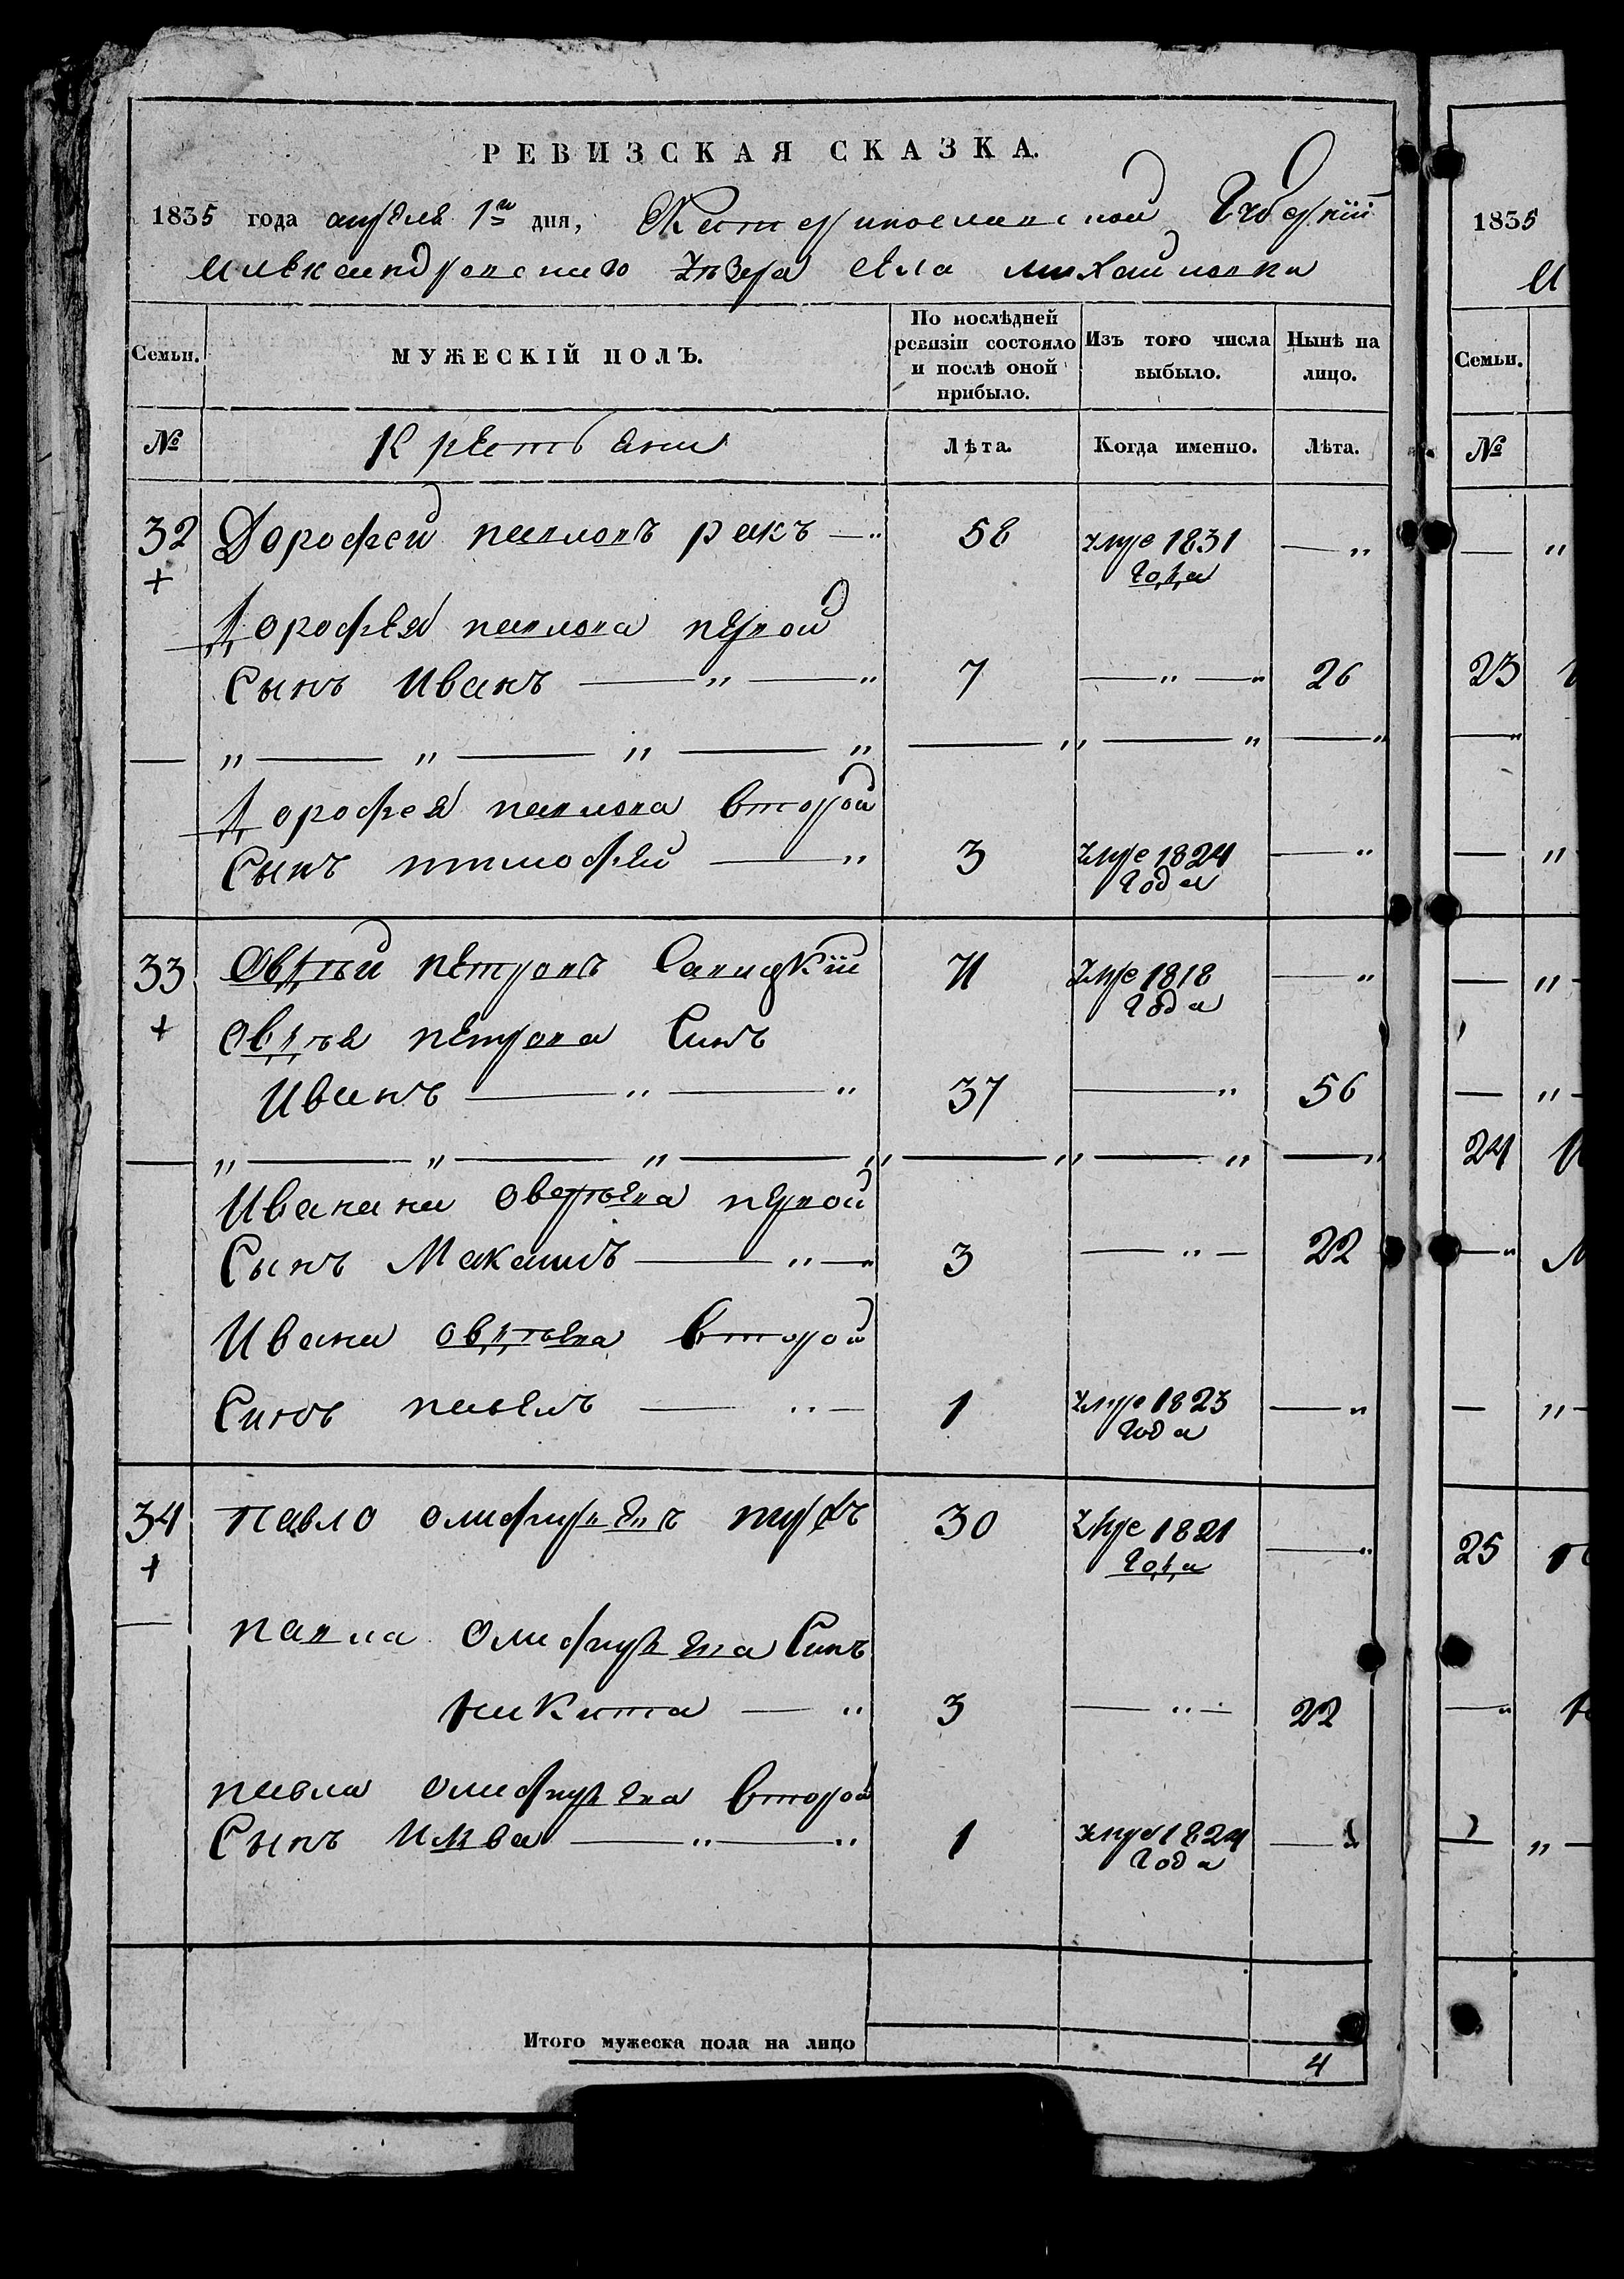 РЕВИЗСКАЯ СКАЗКА.
1835 года апреля 1го дня, Екатеринославской Губернїи
Александровского уезда села Михайловки
Семьи.
МУЖЕСКІЙ ПОЛЪ.
По послѣдней ревизіи состояло и послѣ оной прибыло.
Изъ того числа выбыло.
Нынѣ на лицо.
№
Крестьяни
Лѣта.
Когда именно.
Лѣта.
32 Дорофей павловъ ракъ — 58 умре 1831 — "
года
Дорофея павлова первой
Сынъ Иванъ — " — " 7 — " — " 26
Дорофея павлова второй
Сынъ тимофей — " 3 умре 1824 — "
года
33 Оверпий петровъ 71 умре 1818 — "
года
петрова Синъ
Иванъ — " — " 37 — " 56
Ивана первой
Сынъ Максимъ — " — " 3 — " — 22
Ивана второй
Синъ павелъ — " — 1 умре 1823 — "
года
34 павло 30 умре 1821 — "
года
павла Синъ
никита — " 3 — " — 22
павла второй
Сынъ — " — " 1 умре 1824 —
года
Итого мужеска пола на лицо
4
1835
Семьи.
№
23
24
25